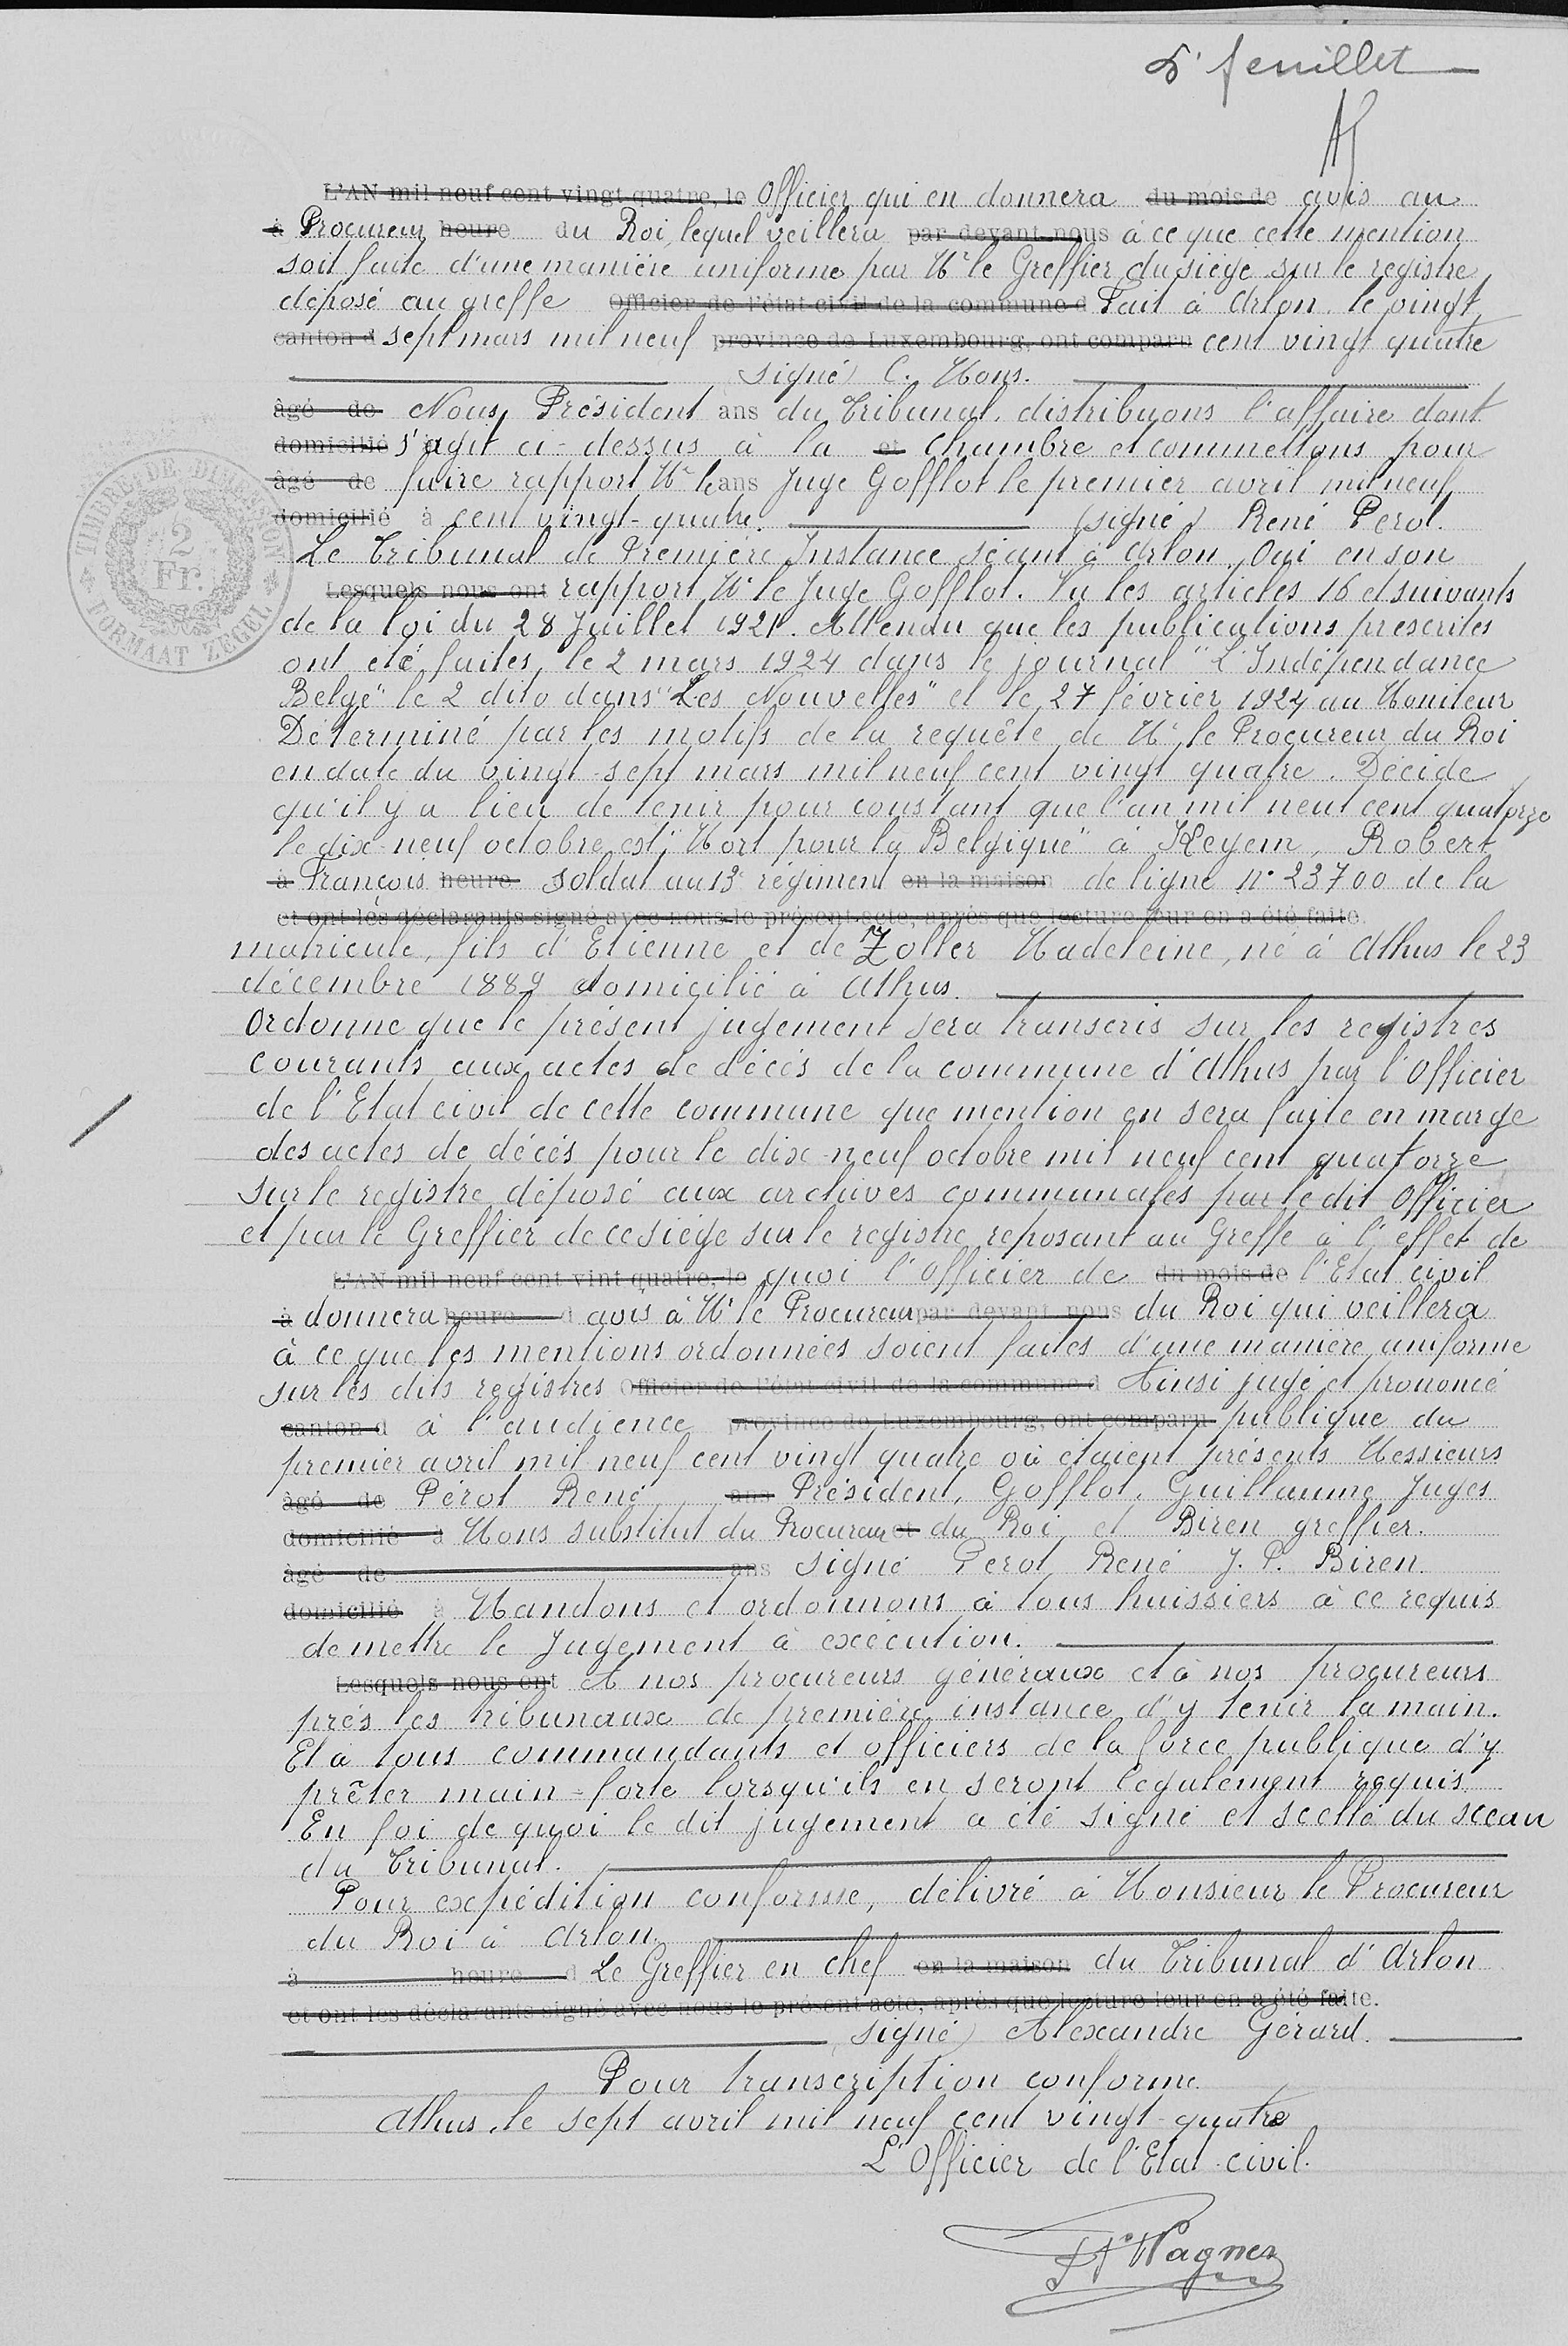 5e feuillet
L'AN mil neuf cent vingt quatre, le Officier qui en donnera du mois de avis au
à Procureur heure du Roi, lequel veillera par devant nous à ce que cette mention
soit faite d'une manière uniforme par Mr le Greffier du siège sur le registre
déposé au greffe Officier de l'état civil de la commune d Fait à Arlon. le vingt
canton d sept mars mil neuf province de Luxembourg, ont comparu cent vingt quatre
signé) C. Mons.
âgé de Nous, Président ans du Tribunal. distribuons l'affaire dont
domicilié s'agit ci-dessus à la et chambre et commettons pour
âgé de faire rapport Mr le ans Juge Gofflot le premier avril mil neuf
domicilié à cent vingt-quatre. (signé) René Perot.
Le Tribunal de Première Instance séant à Arlon. Oui en son
Lesquels nous ont rapport Mr le Juge Gofflot. Vu les articles 16 et suivants
de la loi du 28 Juillet 1921. Attendu que les publications prescrites
ont été faites, le 2 mars 1924 dans le journal "L'Indépendance
Belge" le 2 dito dans "Les Nouvelles" et le 27 février 1924 au Moniteur
Déterminé par les motifs de la requête de Mr le Procureur du Roi
en date du vingt-sept mars mil neuf cent vingt quatre. Décide
qu'il y a lieu de tenir pour constant que l'an mil neuf cent quatorze
le dix-neuf octobre est "Mort pour la Belgique" à Keyem, Robert
à François heure soldat au 13e régiment en la maison de ligne n° 23700 de la
et ont les déclarants signé avec nous le présent acte, après que lecture leur en a été faite.
matricule, fils d'Etienne et de Zoller Madeleine, né à Athus le 23
décembre 1889 domicilié à Athus.
Ordonne que le présent jugement sera transcris sur les registres
courants aux actes de décès de la commune d'Athus par l'Officier
de l'Etat civil de cette commune que mention en sera faite en marge
des actes de décès pour le dix-neuf octobre mil neuf cent quatorze
sur le registre déposé aux archives communales par le dit Officier
et par le Greffier de ce siège sur le registre reposant au Greffe à l'effet de
L'AN mil neuf cent vint quatre, le quoi l'Officier de du mois de l'Etat civil
à donnera heure d avis à Mr le Procureur par devant nous du Roi qui veillera
à ce que les mentions ordonnées soient faites d'une manière uniforme
sur les dits registres Officier de l'état civil de la commune d Ainsi jugé et prononcé
canton d à l'audience province de Luxembourg, ont comparu publique du
premier avril mil neuf cent vingt quatre où étaient présents Messieurs
âgé de Perot René, ans Président, Gofflot, Guillaume Juges
domicilié à Mons substitut du Procureur et du Roi et Biren greffier.
âgé de ans signé Perot René J. P. Biren.
domicilié à Mandons et ordonnons à tous huissiers à ce requis
de mettre le Jugement à exécution.
Lesquels nous ont A nos procureurs généraux et à nos procureurs
près les tribunaux de première instance d'y tenir la main.
Et à tous commandants et officiers de la force publique d'y
prêter main-forte lorsqu'ils en seront légalement requis.
En foi de quoi le dit jugement a été signé et scellé du sceau
du Tribunal.
Pour expédition conforme, délivré à Monsieur le Procureur
du Roi à Arlon.
à heure d Le Greffier en chef en la maison du Tribunal d'Arlon
et ont les déclarants signé avec nous le présent acte, après que lecture leur en a été faite.
signé) Alexandre Gérard.
Pour transcription conforme
Athus, le sept avril mil neuf cent vingt-quatre
L'Officier de l'Etat-civil.
Wagner
TIMBRE DE DIMENSION
2
Fr.
FORMAAT ZEGEL